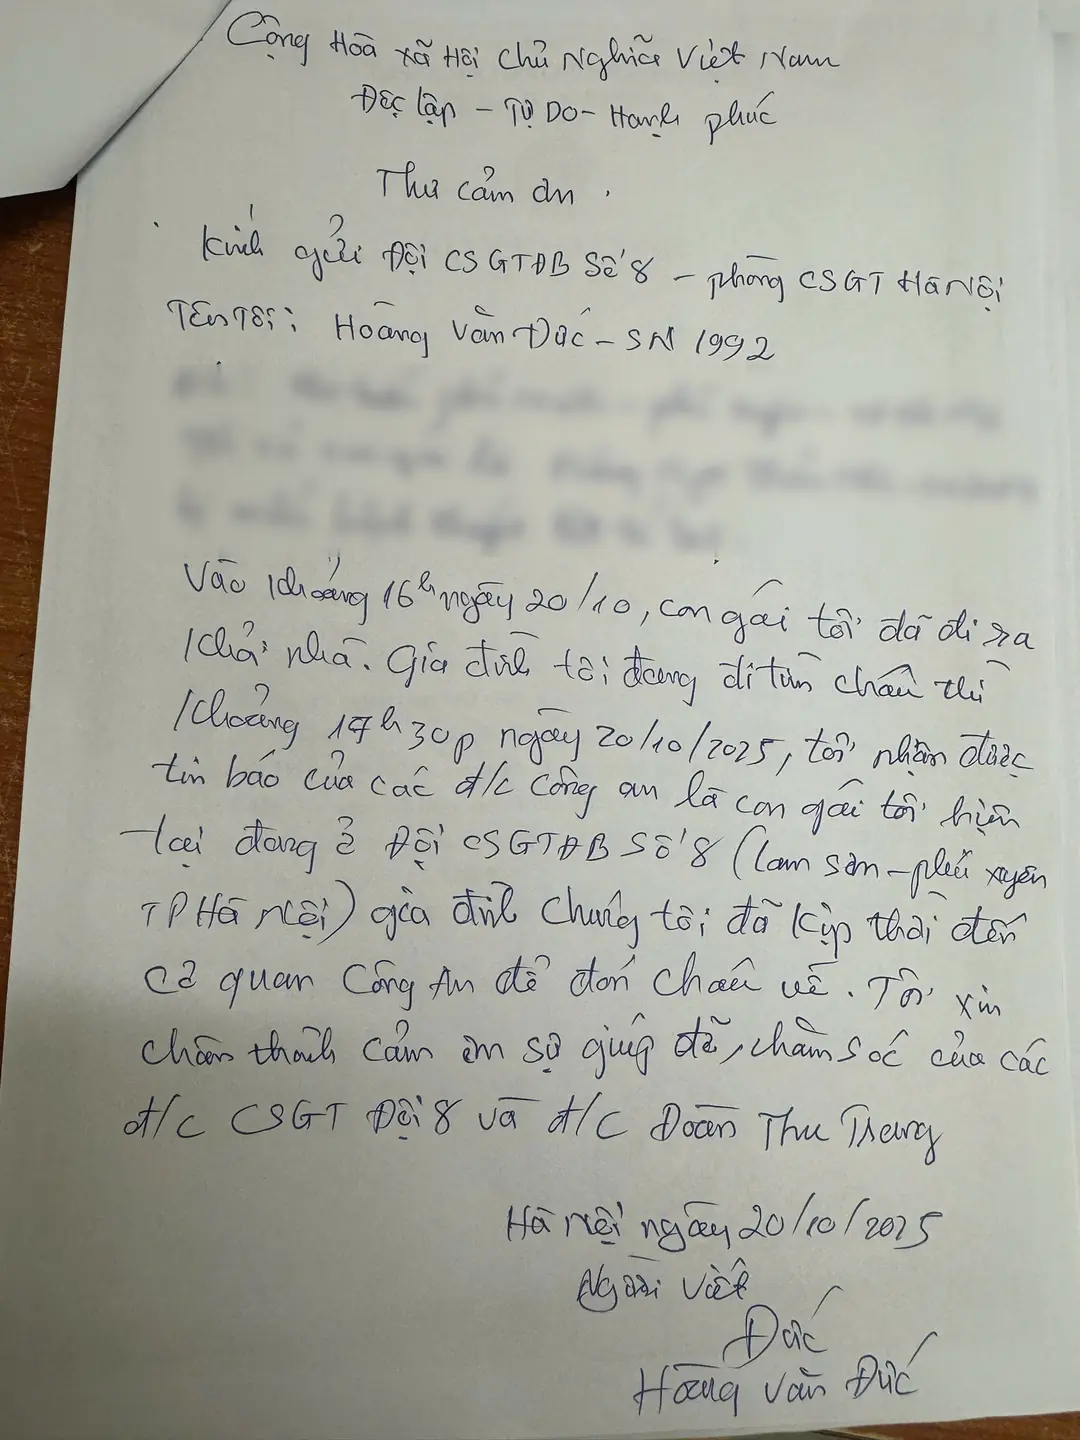 Cộng Hòa xã Hội Chủ Nghĩa Việt Nam
Độc lập - Tự Do - Hạnh phúc
Thư cảm ơn.
Kính gửi Đội CSGTĐB Số 8 - phòng CSGT Hà Nội
Tên Tôi: Hoàng Văn Đức - SN 1992
Vào khoảng 16h ngày 20/10, con gái tôi đã đi ra
khỏi nhà. Gia đình tôi đang đi tìm cháu thì
khoảng 17h30p ngày 20/10/2025, tôi nhận được
tin báo của các đ/c công an là con gái tôi hiện
tại đang ở Đội CSGTĐB Số 8 (Lam Sơn - phú xuyên
TP Hà Nội) gia đình chúng tôi đã kịp thời đến
cơ quan Công An để đón cháu về. Tôi xin
chân thành cảm ơn sự giúp đỡ, chăm sóc của các
đ/c CSGT Đội 8 và đ/c Đoàn Thu Trang
Hà Nội ngày 20/10/2025
Người viết
Đức
Hoàng Văn Đức